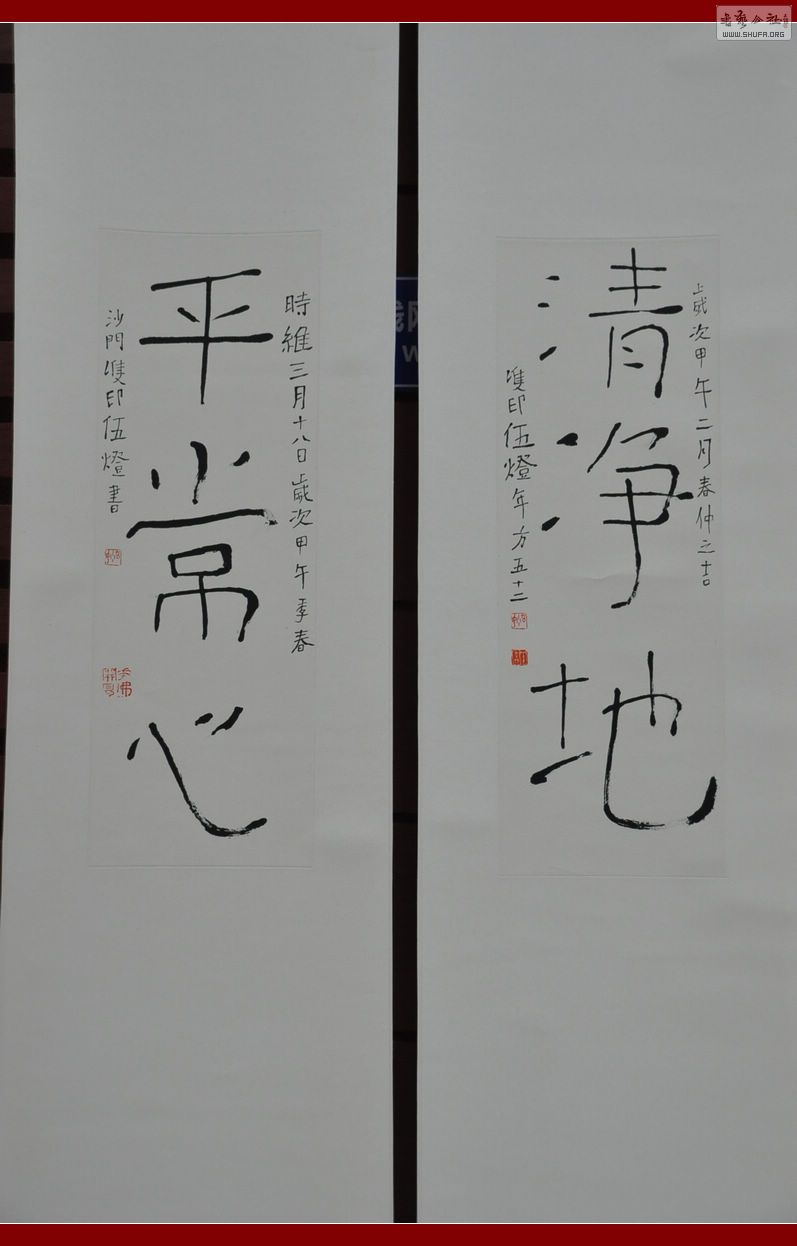 清净地
歲次甲午二月春仲之吉
雙印伍燈年方五十二
平常心
時維三月十八日歲次甲午季春
沙門雙印伍燈書
書藝公社
WWW.SHUFA.ORG